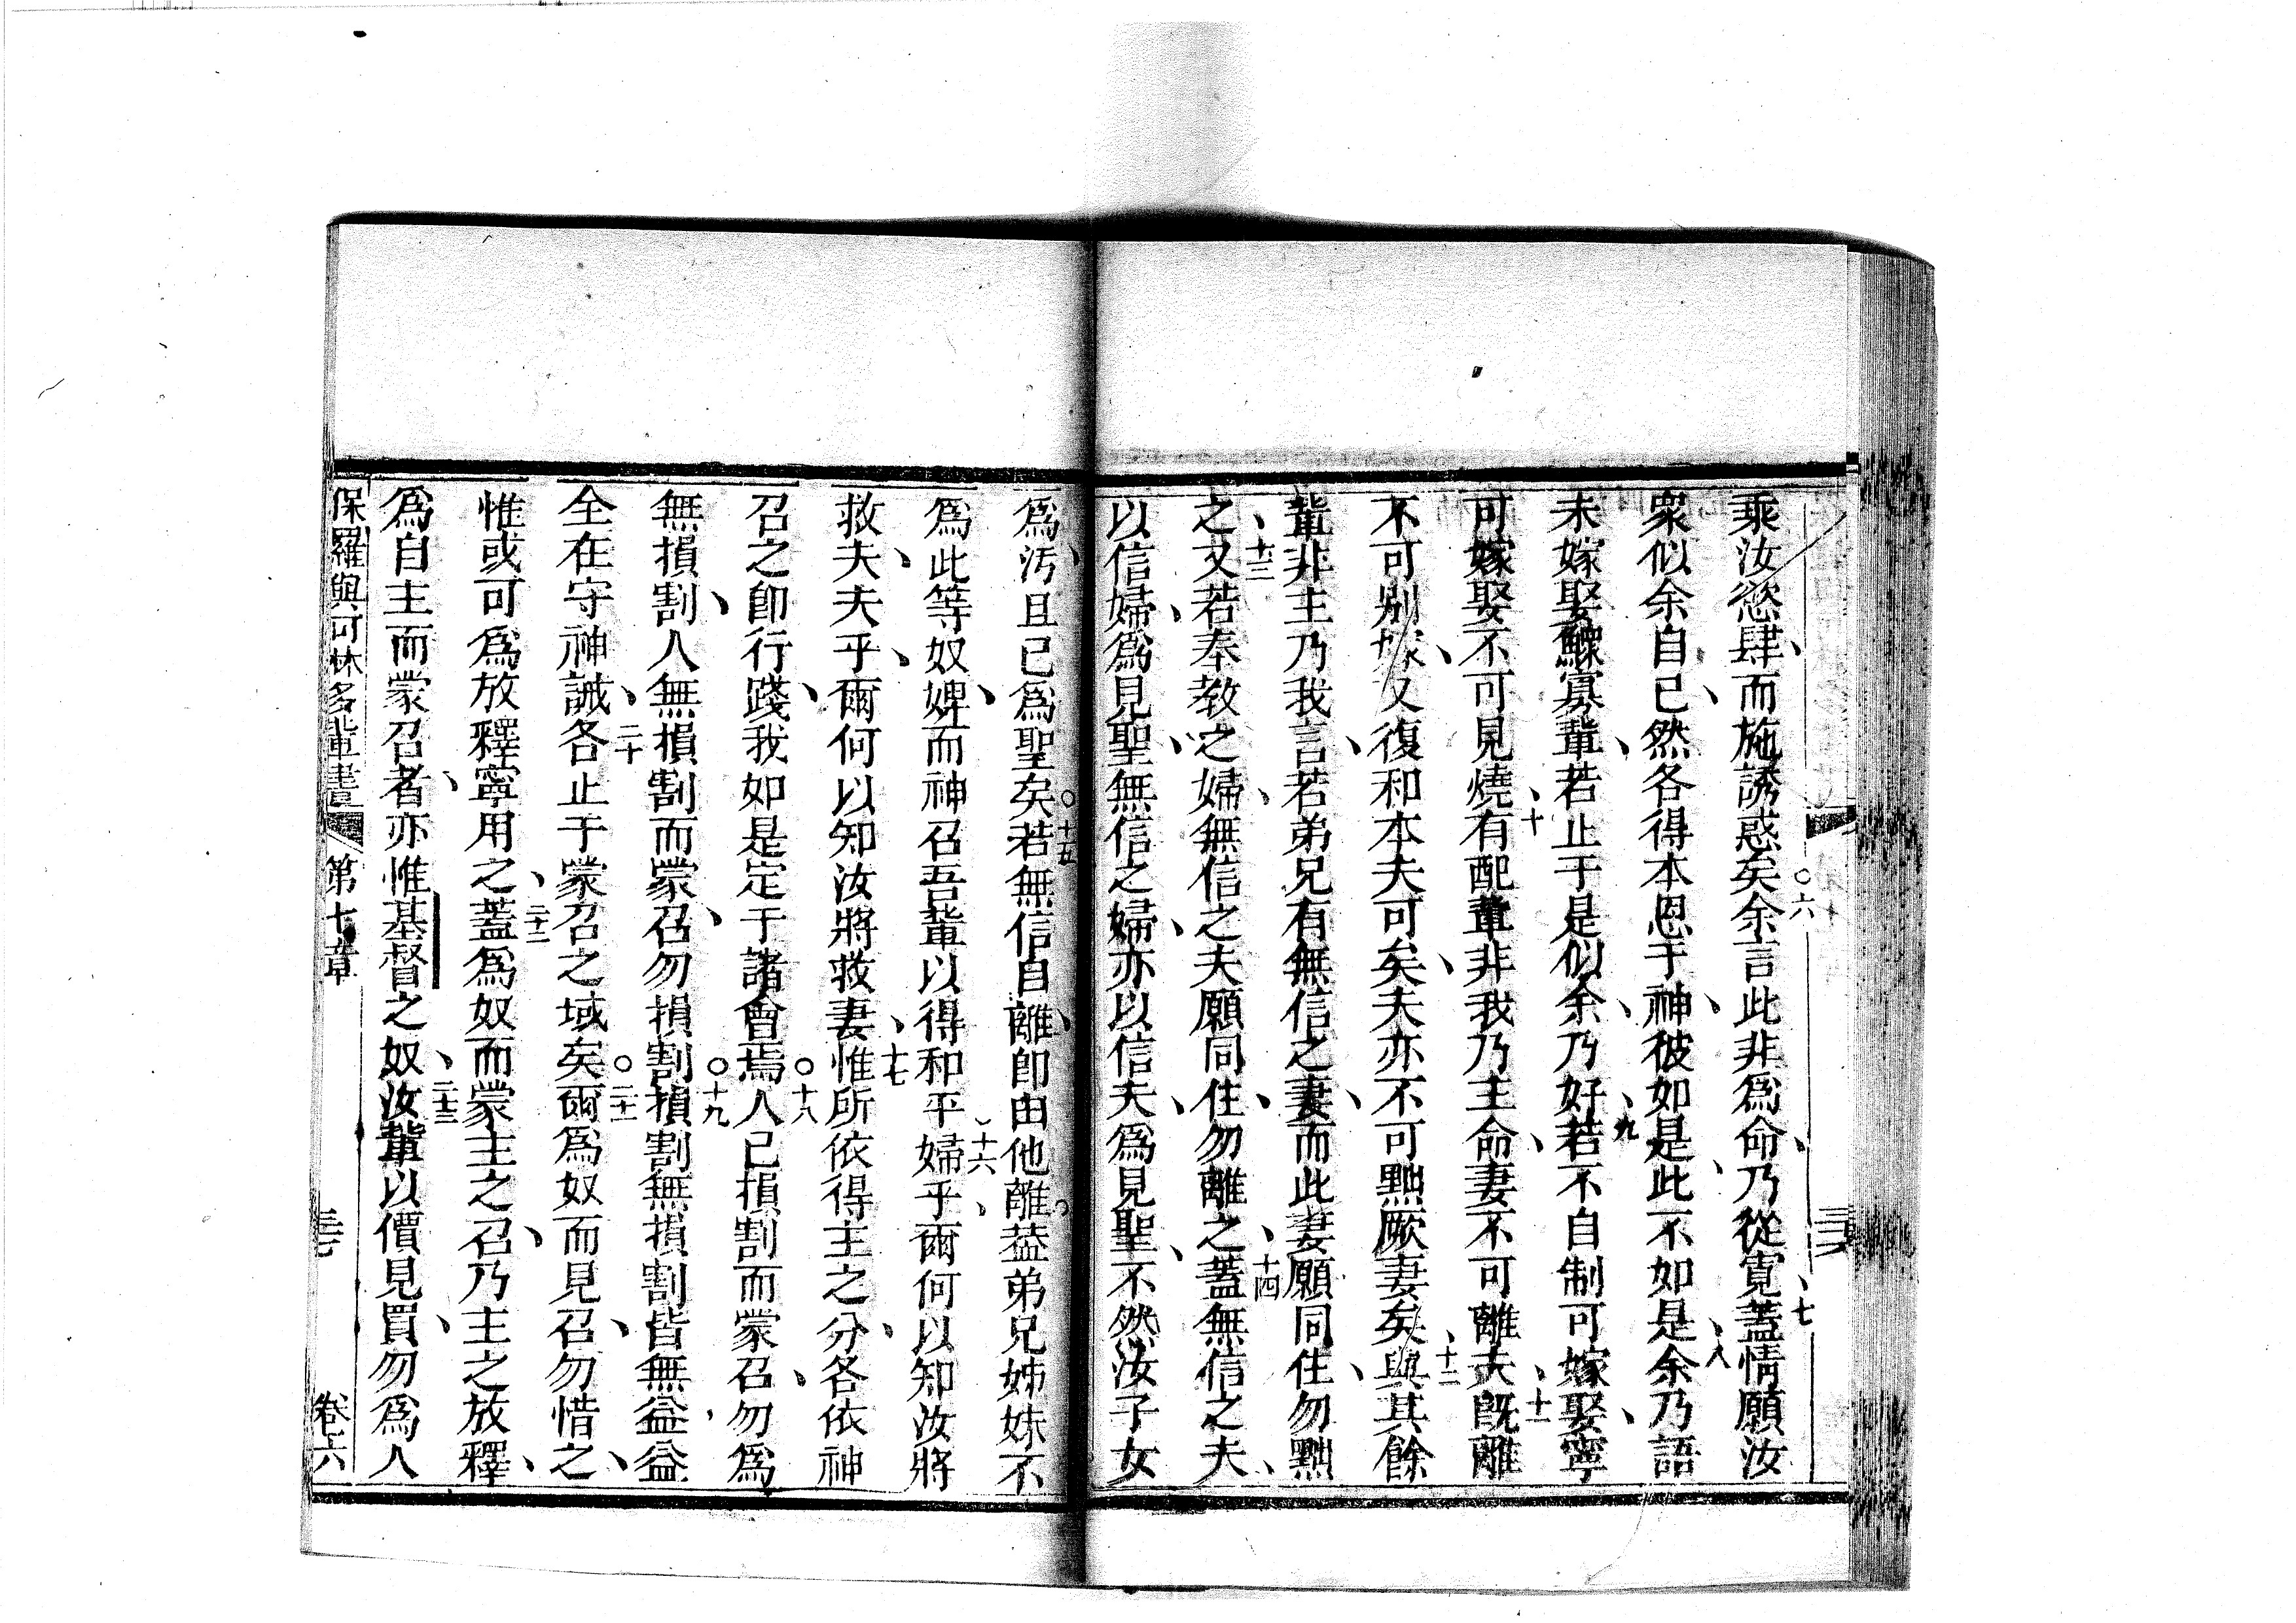 乘汝慾、肆而施誘惑矣○六余言此非爲命、乃從寬、七蓋情願汝
衆似余自己、然各得本恩于神、彼如是、此不如是、八余乃語
未嫁娶鰥寡輩、若止于是似余、乃好、九若不自制可嫁娶、寧
可嫁娶不可見燒、十有配輩非我乃主命、妻不可離夫、十一既離
不可別嫁、又復和本夫可矣、夫亦不可黜厥妻矣、十二與其餘
輩非主乃我言、若弟兄有無信之妻、而此妻願同住、勿黜
之、十三又若奉教之婦、無信之夫願同住、勿離之、十四蓋無信之夫、
以信婦、爲見聖、無信之婦、亦以信夫、爲見聖、不然汝子女
爲、汚且已爲聖矣○十五若無信自離、卽由他離。蓋弟兄姊妹不
爲此等奴婢、而神召吾輩以得和平、十六婦乎、爾何以知汝將
救夫、夫乎、爾何以知汝將救妻、十七惟所依得主之分、各依神
召之卽行踐、我如是定于諸會焉○十八人已損割而蒙召、勿爲
無損割、人無損割而蒙召、勿損割○十九損割無損割皆無益、益
全在守神誡、二十各止于蒙召之域矣○二十一爾爲奴而見召、勿惜之、
惟或可爲放釋寧用之、二十二蓋爲奴而蒙主之召、乃主之放釋、
爲自主而蒙召者、亦惟基督之奴、二十三汝輩以價見買、勿爲人
保羅與可林多輩書 第七章 卷六